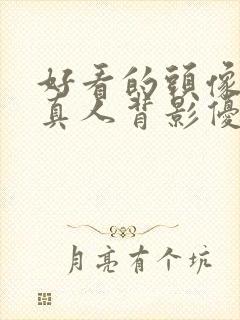 好看的頭像
真人背影優
月亮有个坑